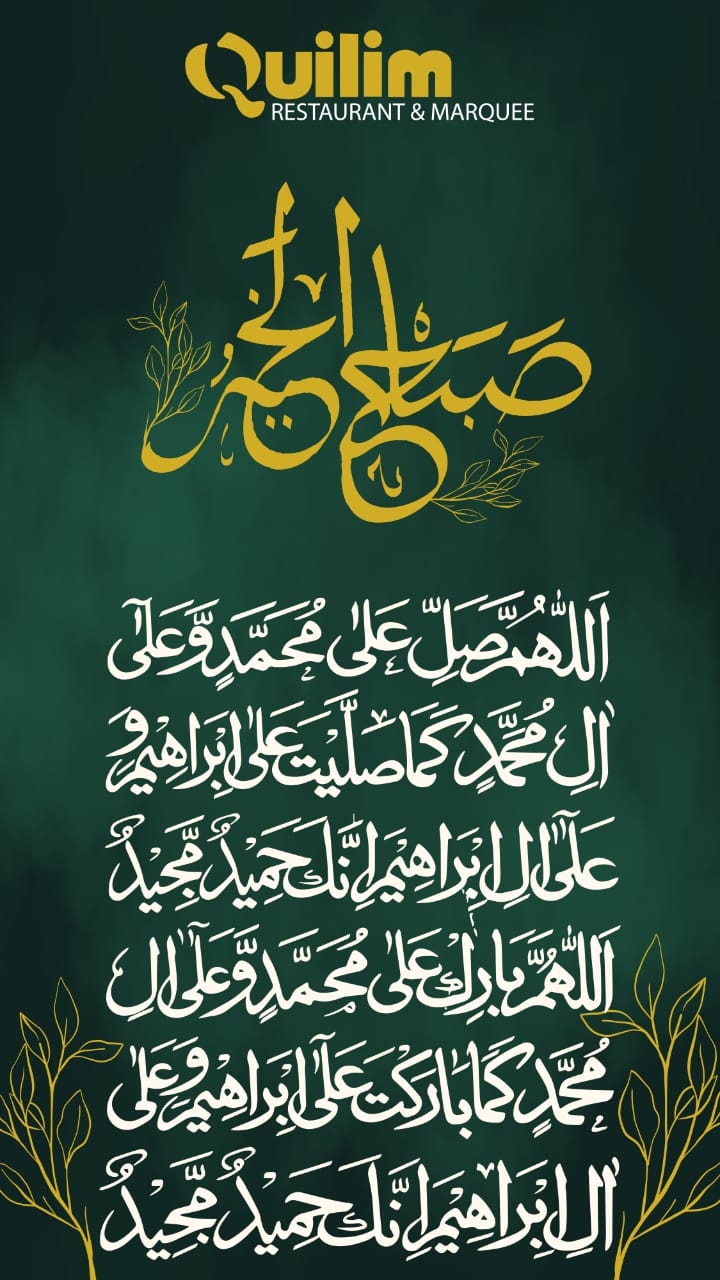 Quilim
RESTAURANT & MARQUEE
صَبَاحُ الْخَيْر
اَللّٰهُمَّ صَلِّ عَلٰى مُحَمَّدٍ وَّعَلٰٓى
اٰلِ مُحَمَّدٍ كَمَا صَلَّيْتَ عَلٰٓى اِبْرَاهِيْمَ وَ
عَلٰٓى اٰلِ اِبْرَاهِيْمَ اِنَّكَ حَمِيْدٌ مَّجِيْدٌ
اَللّٰهُمَّ بَارِكْ عَلٰى مُحَمَّدٍ وَّعَلٰٓى اٰلِ
مُحَمَّدٍ كَمَا بَارَكْتَ عَلٰٓى اِبْرَاهِيْمَ وَعَلٰٓى
اٰلِ اِبْرَاهِيْمَ اِنَّكَ حَمِيْدٌ مَّجِيْدٌ